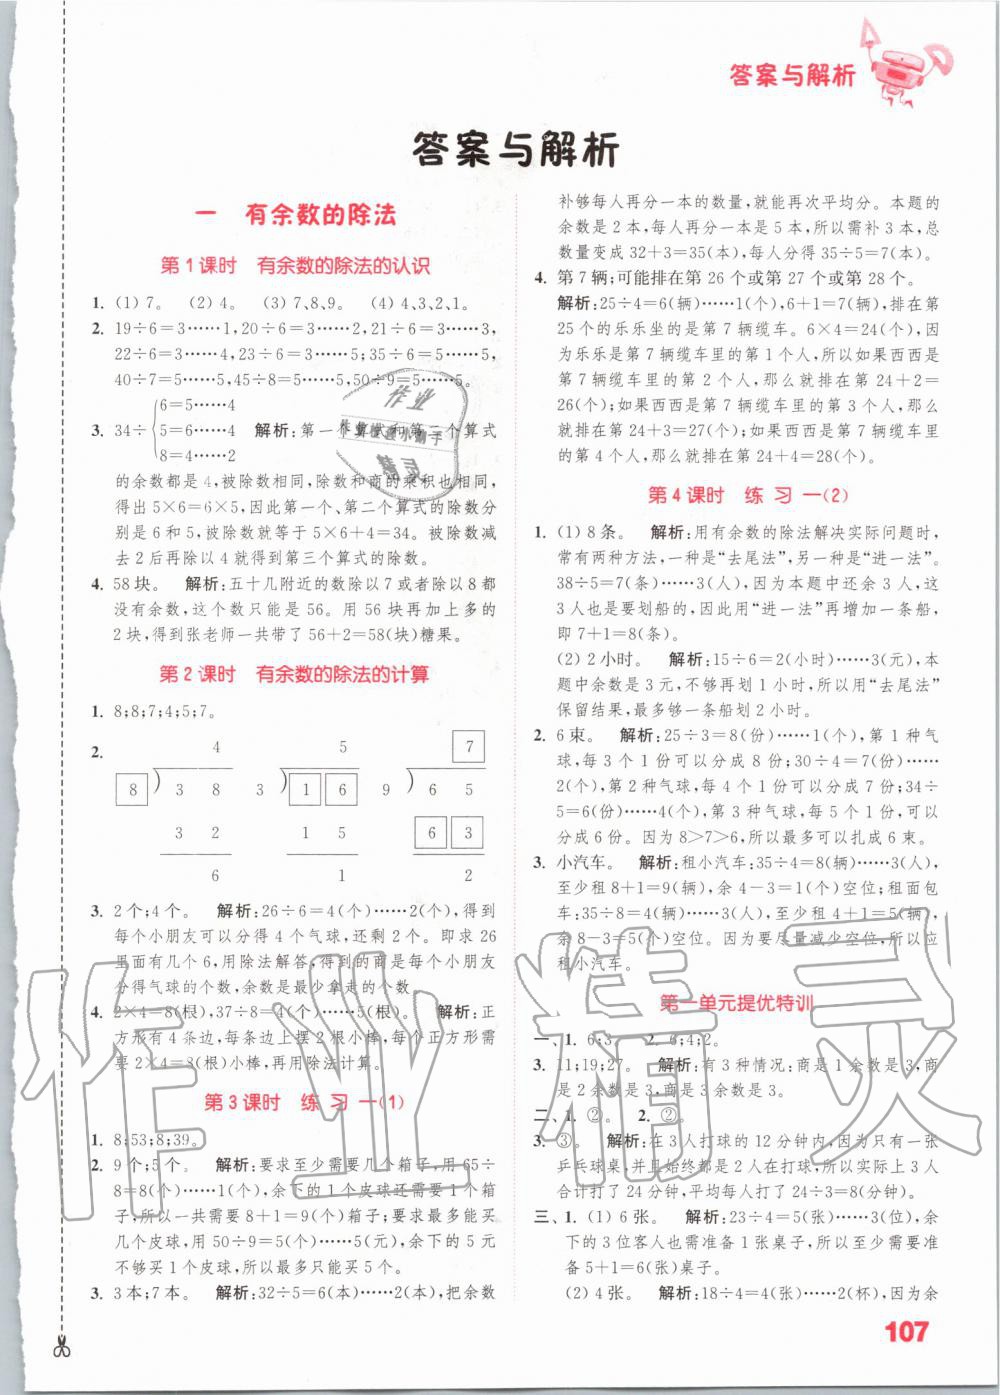 答案与解析
答案与解析
一 有余数的除法
第1课时 有余数的除法的认识
1. (1) 7。 (2) 4。 (3) 7、8、9。 (4) 4、3、2、1。
2. 19÷6=3……1,20÷6=3……2,21÷6=3……3,
22÷6=3……4,23÷6=3……5;35÷6=5……5,
40÷7=5……5,45÷8=5……5,50÷9=5……5。
3. 34÷
6=5……4
5=6……4
8=4……2
解析:第一个算式和第二个算式
的余数都是4,被除数相同,除数和商的乘积也相同,
即5×6=6×5,因此第一个、第二个算式的除数分
别是6和5,被除数就等于5×6+4=34。被除数减
去2后再除以4就得到第三个算式的除数。
4. 58块。 解析:五十几附近的数除以7或者除以8都
没有余数,这个数只能是56。用56块再加上多的
2块,得到张老师一共带了56+2=58(块)糖果。
第2课时 有余数的除法的计算
1. 8;8;7;4;5;7。
2.
4 5 7
8 3 8 3 1 6 9 6 5
3 2 1 5 6 3
6 1 2
3. 2个;4个。 解析:26÷6=4(个)……2(个),得到
每个小朋友可以分得4个气球,还剩2个。即求26
里面有几个6,用除法解答,得到的商是每个小朋友
分得气球的个数,余数是最少拿走的个数。
4. 2×4=8(根),37÷8=4(个)……5(根)。 解析:正
方形有4条边,每条边上摆2根小棒,每个正方形需
要2×4=8(根)小棒,再用除法计算。
第3课时 练习一(1)
1. 8;53;8;39。
2. 9个;5个。 解析:要求至少需要几个箱子,用65÷
8=8(个)……1(个),余下的1个皮球还需要1个箱
子,所以一共需要8+1=9(个)箱子;要求最多能买
几个皮球,用50÷9=5(个)……5(元),余下的5元
不够买1个皮球,所以最多只能买5个。
3. 3本;7本。 解析:32÷5=6(本)……2(本),把余数
补够每人再分一本的数量,就能再次平均分。本题的
余数是2本,每人再分一本是5本,所以需补3本,总
数量变成32+3=35(本),每人分得35÷5=7(本)。
4. 第7辆;可能排在第26个或第27个或第28个。
解析:25÷4=6(辆)……1(个),6+1=7(辆),排在第
25个的乐乐坐的是第7辆缆车。6×4=24(个),因
为乐乐是第7辆缆车里的第1个人,所以如果西西是
第7辆缆车里的第2个人,那么就排在第24+2=
26(个);如果西西是第7辆缆车里的第3个人,那么
就排在第24+3=27(个);如果西西是第7辆缆车里
的第4个人,那么就排在第24+4=28(个)。
第4课时 练习一(2)
1. (1) 8条。 解析:用有余数的除法解决实际问题时,
常有两种方法,一种是“去尾法”,另一种是“进一法”。
38÷5=7(条)……3(人),因为本题中还余3人,这
3人也是要划船的,因此用“进一法”再增加一条船,
即7+1=8(条)。
(2) 2小时。 解析:15÷6=2(小时)……3(元),本
题中余数是3元,不够再划1小时,所以用“去尾法”
保留结果,最多够一条船划2小时。
2. 6束。 解析:25÷3=8(份)……1(个),第1种气
球,每3个1份可以分成8份;30÷4=7(份)……
2(个),第2种气球,每4个1份可以分成7份;34÷
5=6(份)……4(个),第3种气球,每5个1份,可以
分成6份。因为8>7>6,所以最多可以扎成6束。
3. 小汽车。 解析:租小汽车:35÷4=8(辆)……3(人),
至少租8+1=9(辆),余4-3=1(个)空位;租面包
车:35÷8=4(辆)……3(人),至少租4+1=5(辆),
余8-3=5(个)空位。因为要尽量减少空位,所以应
租小汽车。
第一单元提优特训
一、1. 6;3。 2. 6;4;2。
3. 11;19;27。 解析:有3种情况:商是1余数是3,商
是2余数是3,商是3余数是3。
二、1. ②。 2. ②。
3. ③。 解析:在3人打球的12分钟内,因为只有一张
乒乓球桌,并且始终都是2人在打球,所以实际上3人
合计打了24分钟,平均每人打了24÷3=8(分钟)。
三、1. (1) 6张。 解析:23÷4=5(张)……3(位),余
下的3位客人也需要准备1张桌子,所以至少需准备
5+1=6(张)桌子。
(2) 4张。 解析:18÷4=4(张)……2(杯),因为余
107
作业精灵